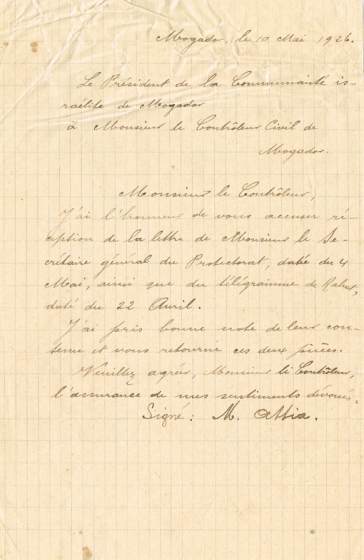 Mogador, le 10 Mai 1926.
Le Président de la Communauté is-
raélite de Mogador
à Monsieur le Contrôleur Civil de
Mogador.
Monsieur le Contrôleur,
J'ai l'honneur de vous accuser ré-
ception de la lettre de Monsieur le Se-
crétaire général du Protectorat, datée du 4
Mai, ainsi que du télégramme de Rabat,
daté du 22 Avril.
J'ai pris bonne note de leur con-
tenu et vous retourne ces deux pièces.
Veuillez agréer, Monsieur le Contrôleur,
l'assurance de mes sentiments dévoués.
Signé: M. Attia.